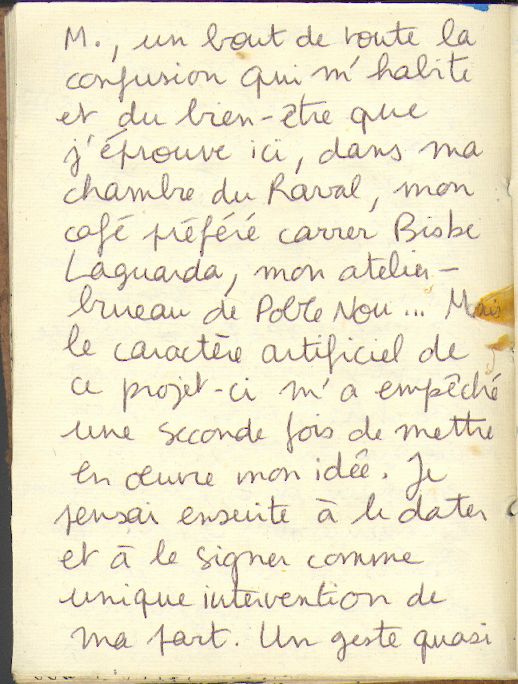 M., un bout de toute la
confusion qui m'habite
et du bien-être que
j'éprouve ici, dans ma
chambre du Raval, mon
café préféré carrer Bisbe
Laguarda, mon atelier-
bureau de Poble Nou... Mais
le caractère artificiel de
ce projet-ci m'a empêché
une seconde fois de mettre
en œuvre mon idée. Je
pensai ensuite à le dater
et à le signer comme
unique intervention de
ma part. Un geste quasi